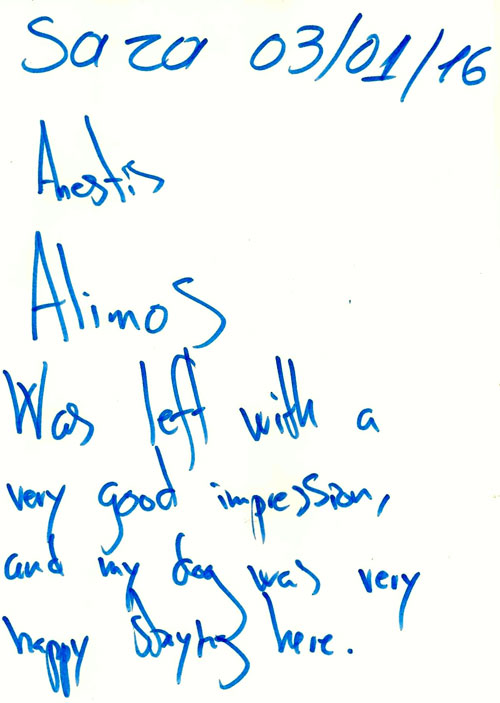 Saza 03/01/16
Anestis
Alimos
Was left with a
very good impression,
and my dog was very
happy staying here.